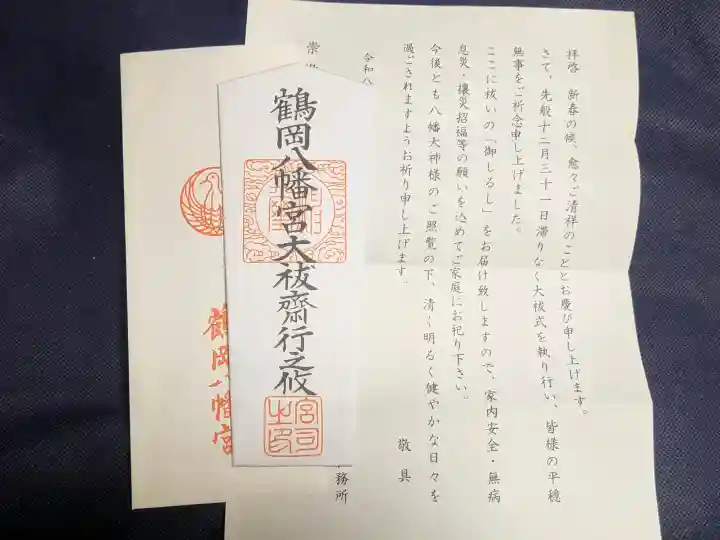 拝啓 新春の候、愈々ご清祥のこととお慶び申し上げます。
さて、先般十二月三十一日滞りなく大祓式を執り行い、皆様の平穏
無事をご祈念申し上げました。
ここに祓いの「御しるし」をお届け致しますので、家内安全・無病
息災・攘災招福等の願いを込めてご家庭にお祀り下さい。
今後とも八幡大神様のご照覧の下、清く明るく健やかな日々を
過ごされますようお祈り申し上げます。
敬具
令和八
務所
鶴岡八幡宮大祓齋行之攸
宮司之印
鶴岡八幡宮